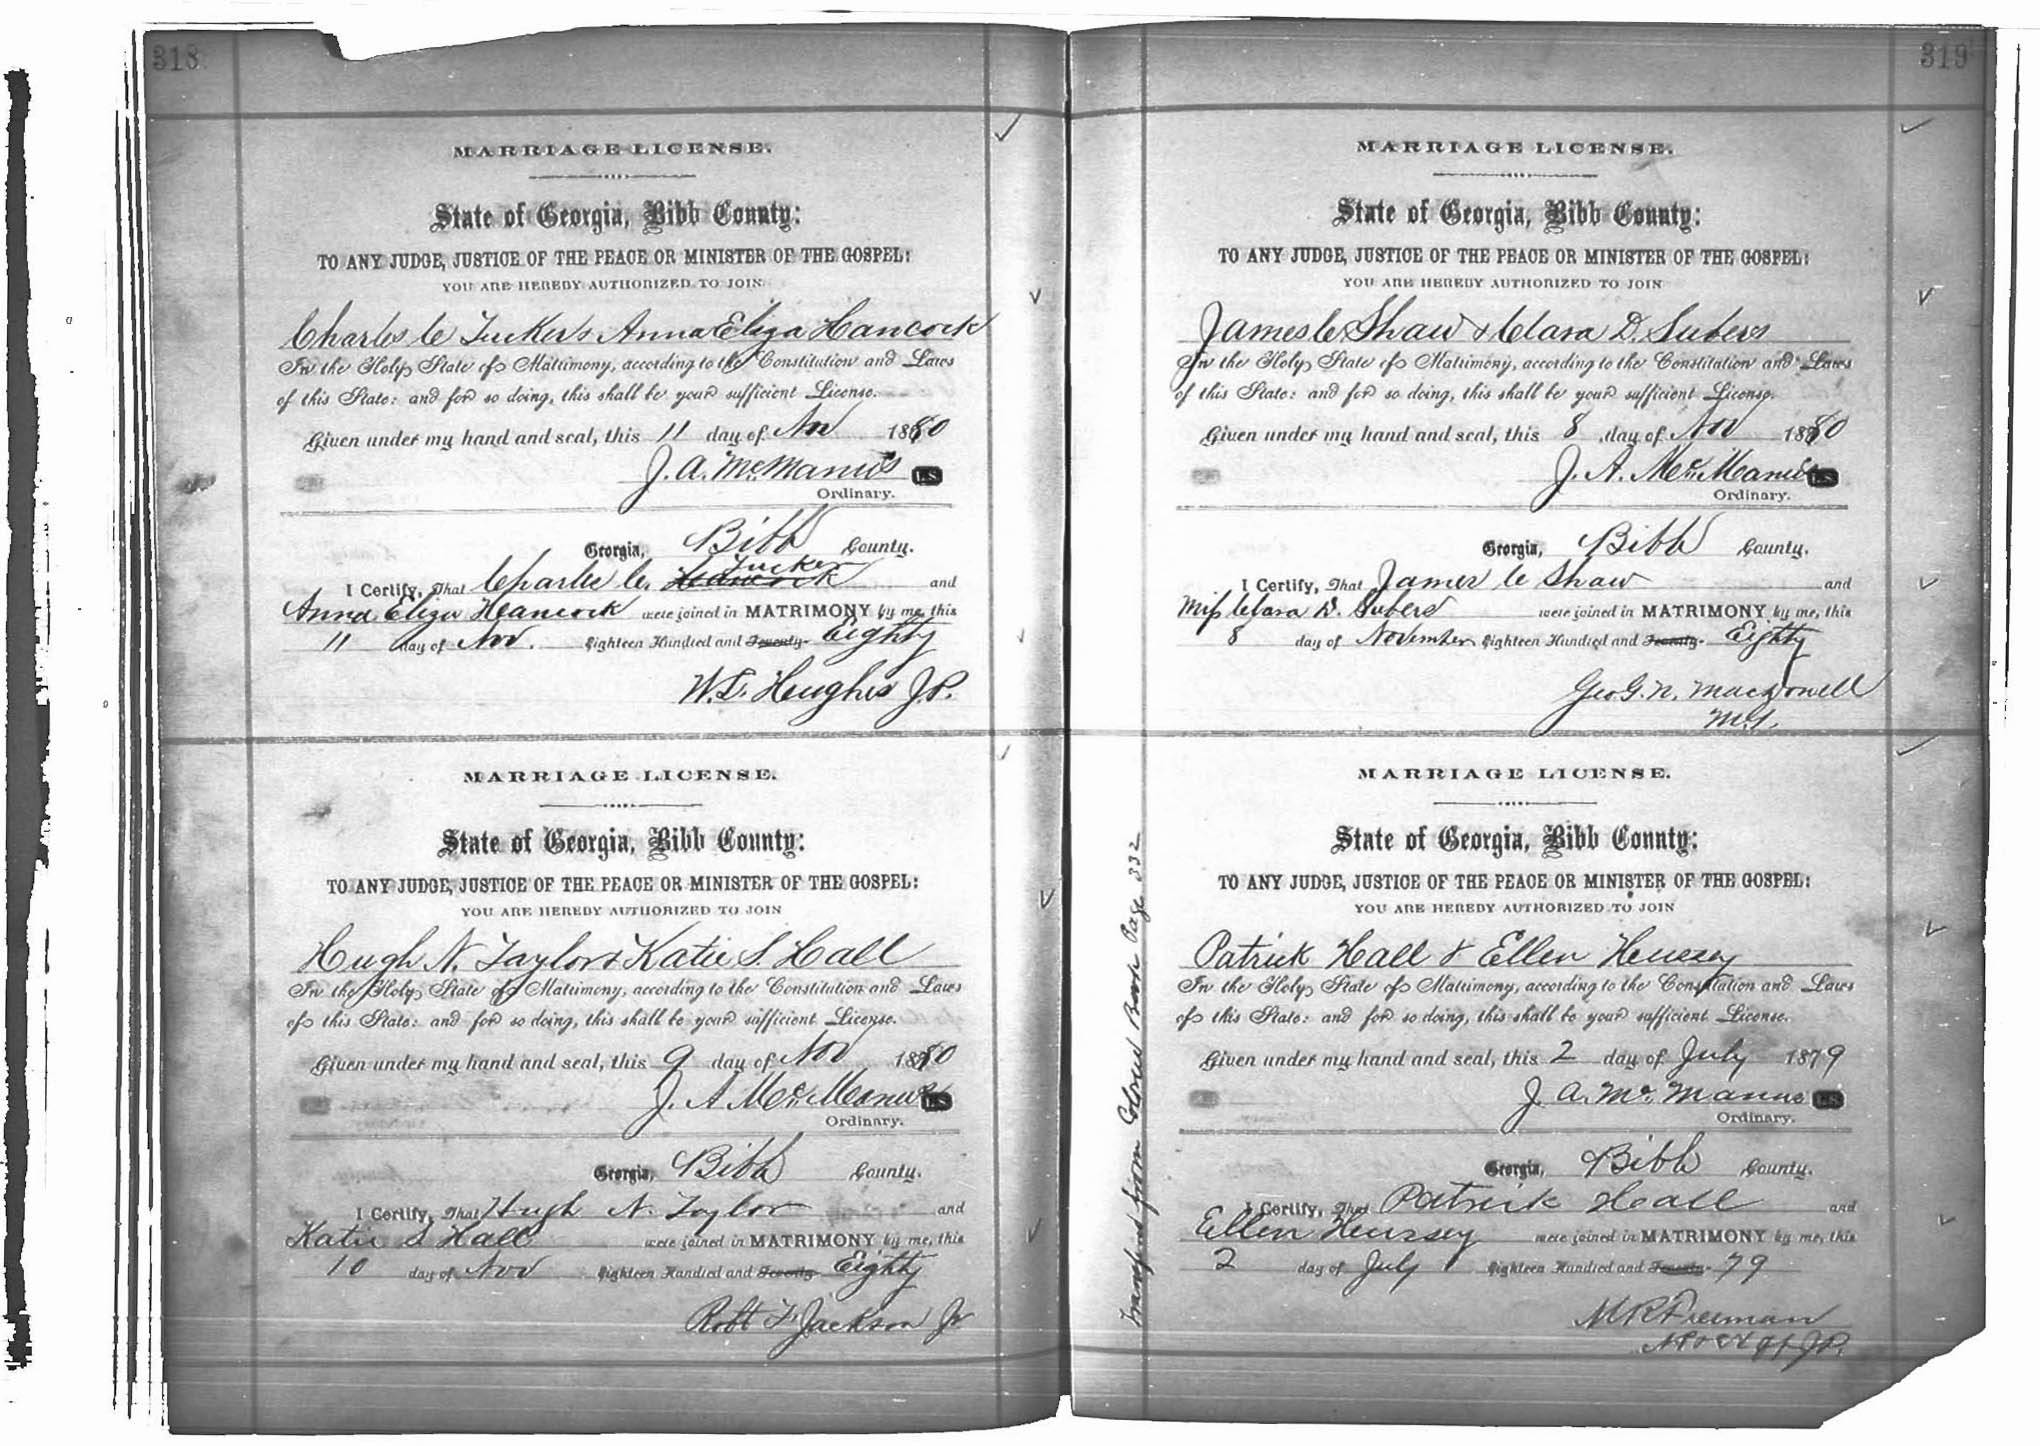 318
MARRIAGE LICENSE.
State of Georgia, Bibb County:
TO ANY JUDGE, JUSTICE OF THE PEACE OR MINISTER OF THE GOSPEL:
YOU ARE HEREBY AUTHORIZED TO JOIN
Charles C Tucker & Anna Eliza Hancock
In the Holy State of Matrimony, according to the Constitution and Laws
of this State: and for so doing, this shall be your sufficient License.
Given under my hand and seal, this 11 day of Nov 1880
J. A. McManus L.S.
Ordinary.
Georgia, Bibb County.
Tucker
I Certify, That Charlie C. Hancock and
Anna Eliza Hancock were joined in MATRIMONY by me, this
11 day of Nov. Eighteen Hundred and Seventy- Eighty
W. L. Hughes J.P.
MARRIAGE LICENSE.
State of Georgia, Bibb County:
TO ANY JUDGE, JUSTICE OF THE PEACE OR MINISTER OF THE GOSPEL:
YOU ARE HEREBY AUTHORIZED TO JOIN
Hugh N. Taylor & Katie S. Hall
In the Holy State of Matrimony, according to the Constitution and Laws
of this State: and for so doing, this shall be your sufficient License.
Given under my hand and seal, this 9 day of Nov 1880
J. A McManus L.S.
Ordinary.
Georgia, Bibb County.
I Certify, That Hugh N. Taylor and
Katie S Hall were joined in MATRIMONY by me, this
10 day of Nov Eighteen Hundred and Seventy- Eighty
Robt F. Jackson Jr
319
MARRIAGE LICENSE.
State of Georgia, Bibb County:
TO ANY JUDGE, JUSTICE OF THE PEACE OR MINISTER OF THE GOSPEL:
YOU ARE HEREBY AUTHORIZED TO JOIN
James C Shaw & Clara D. Subers
In the Holy State of Matrimony, according to the Constitution and Laws
of this State: and for so doing, this shall be your sufficient License.
Given under my hand and seal, this 8 day of Nov 1880
J. A. McManus L.S.
Ordinary.
Georgia, Bibb County.
I Certify, That James C Shaw and
Miss Clara D. Subers were joined in MATRIMONY by me, this
8 day of November Eighteen Hundred and Seventy- Eighty
Geo G. N. MacDonell
M.G.
Transferred from Colored Book Page 332
MARRIAGE LICENSE.
State of Georgia, Bibb County:
TO ANY JUDGE, JUSTICE OF THE PEACE OR MINISTER OF THE GOSPEL:
YOU ARE HEREBY AUTHORIZED TO JOIN
Patrick Hall & Ellen Heussy
In the Holy State of Matrimony, according to the Constitution and Laws
of this State: and for so doing, this shall be your sufficient License.
Given under my hand and seal, this 2 day of July 1879
J. A. McManus L.S.
Ordinary.
Georgia, Bibb County.
I Certify, That Patrick Hall and
Ellen Heussey were joined in MATRIMONY by me, this
2 day of July Eighteen Hundred and Seventy- 79
M R Freeman
J.P.